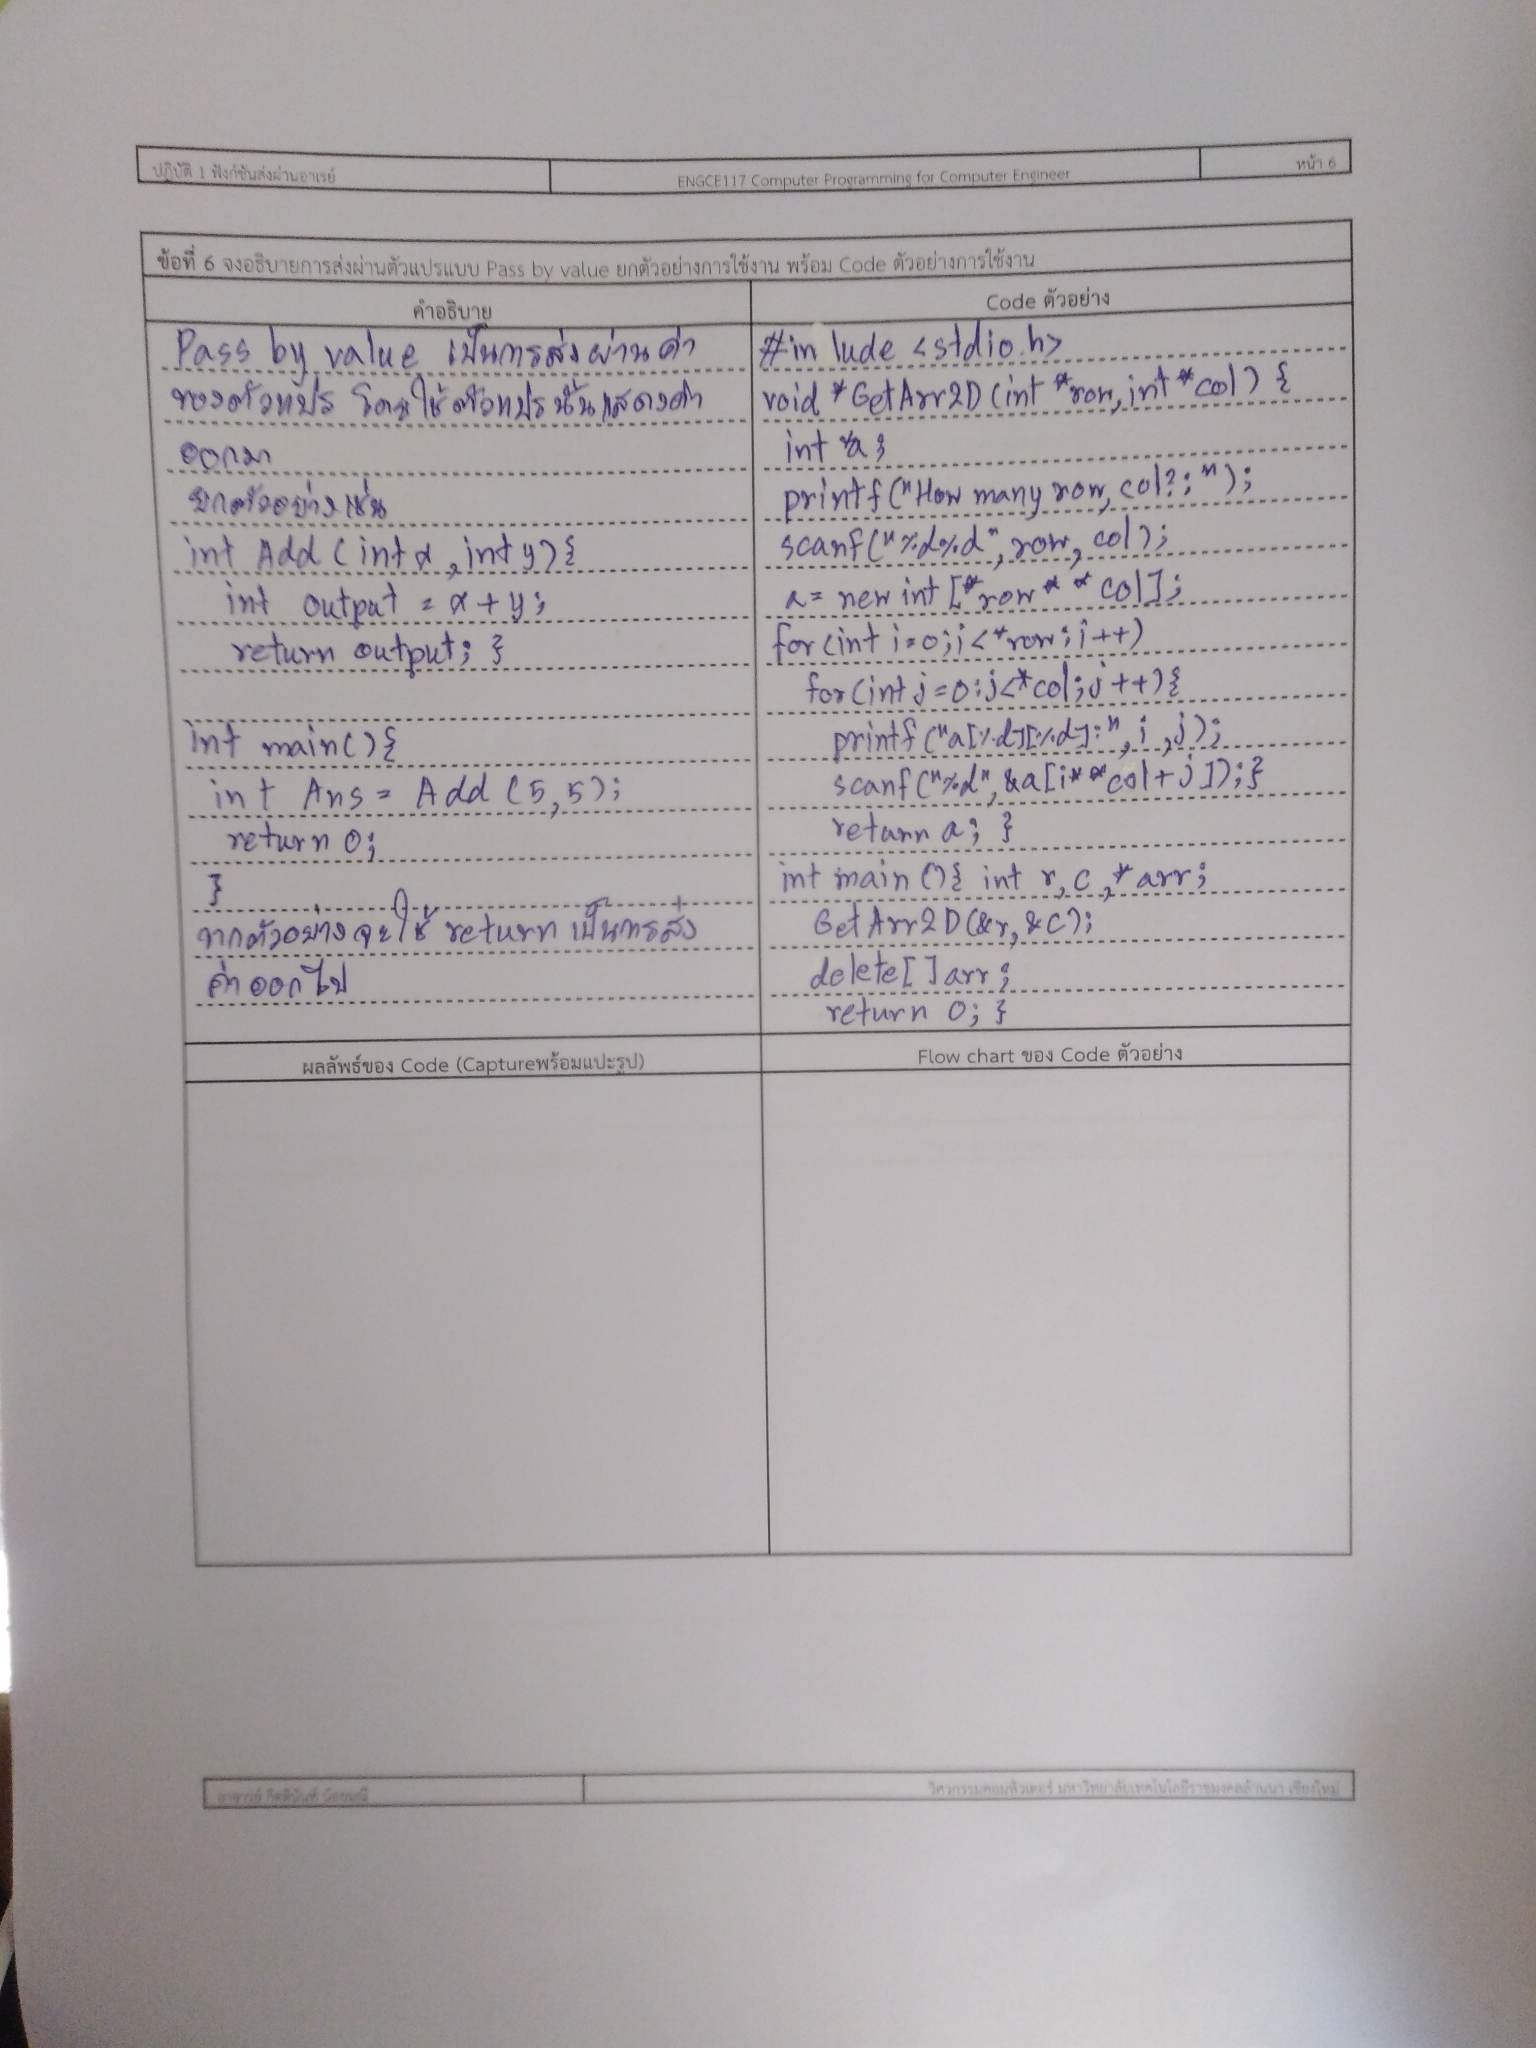 ปฏิบัติ 1 ฟังก์ชันส่งผ่านอาเรย์
ENGCE117 Computer Programming for Computer Engineer
หน้า 6
ข้อที่ 6 จงอธิบายการส่งผ่านตัวแปรแบบ Pass by value ยกตัวอย่างการใช้งาน พร้อม Code ตัวอย่างการใช้งาน
คำอธิบาย
Pass by value เป็นการส่งผ่านค่า
ของตัวแปร โดยใช้ตัวแปรนั้นแสดงค่า
ออกมา
ยกตัวอย่างเช่น
int Add (int x, int y) {
int output = x + y;
return output; }
int main() {
int Ans = Add (5,5);
return 0;
}
จากตัวอย่างจะใช้ return เป็นการส่ง
ค่าออกไป
Code ตัวอย่าง
#in lude <stdio.h>
void *GetArr2D (int *row, int *col) {
int *a;
printf("How many row, col?:");
scanf("%d%d", row, col);
a = new int [*row * *col];
for (int i=0; i<*row; i++)
for (int j=0; j<*col; j++) {
printf("a[%d][%d]:", i, j);
scanf("%d", &a[i* *col+j]); }
return a; }
int main () { int r, c, *arr;
GetArr2D(&r, &c);
delete[] arr;
return 0; }
ผลลัพธ์ของ Code (Captureพร้อมแปะรูป)
Flow chart ของ Code ตัวอย่าง
วิศวกรรมคอมพิวเตอร์ มหาวิทยาลัยเทคโนโลยีราชมงคลล้านนา เชียงใหม่